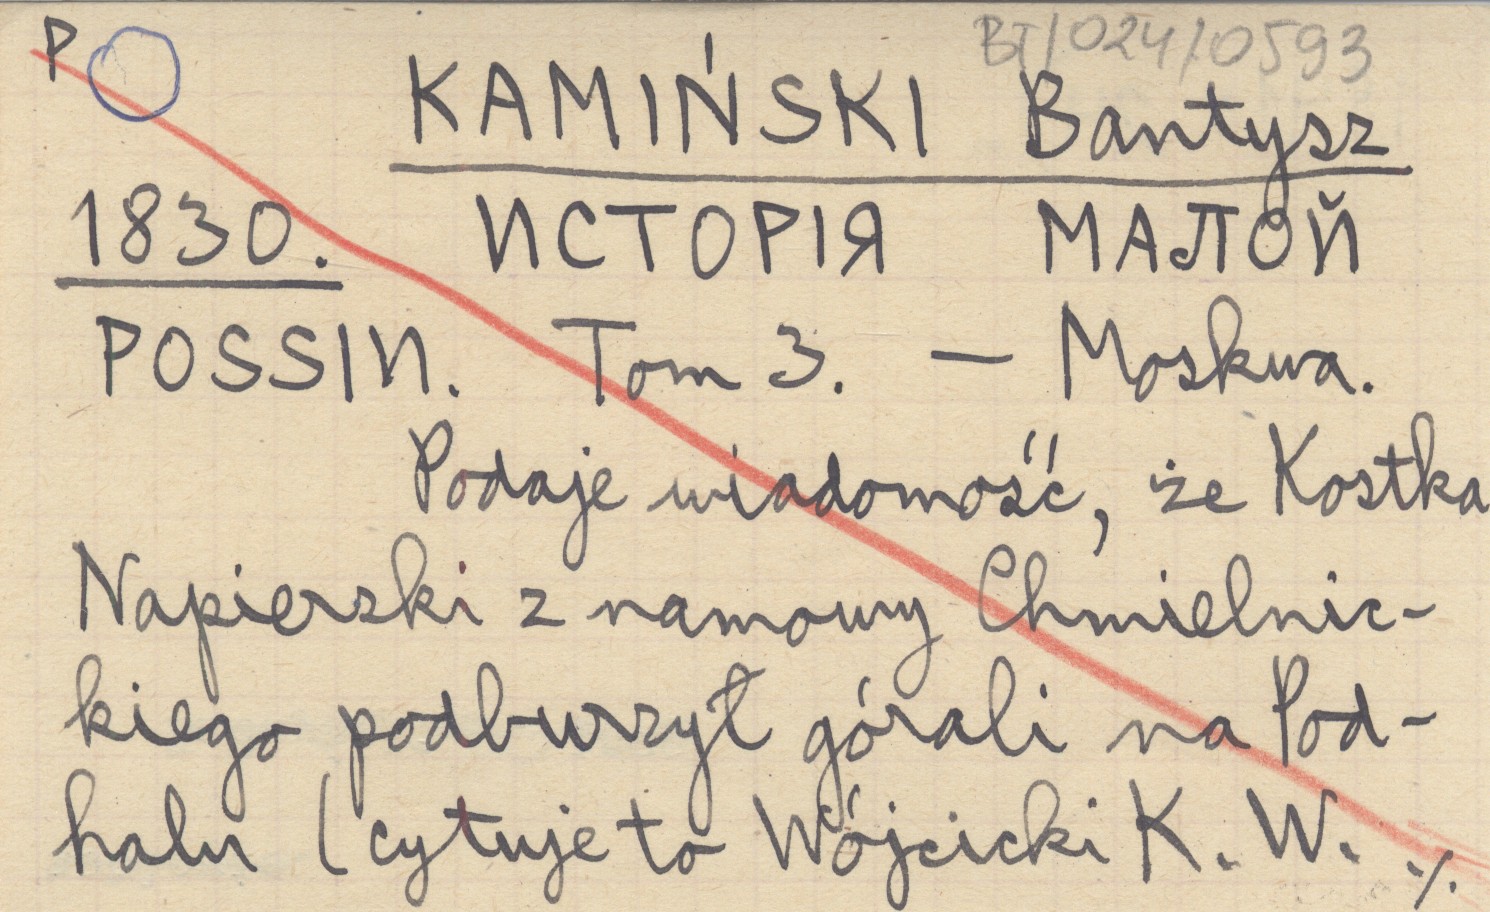 P
BT/024/0593
KAMIŃSKI Bantysz
1830. ИСТОРІЯ МАЛОЙ
POSSIИ. Tom 3. — Moskwa.
Podaje wiadomość, że Kostka
Napierski z namowy Chmielnic-
kiego podburzył górali na Pod-
halu (cytuje to Wójcicki K. W. ./.